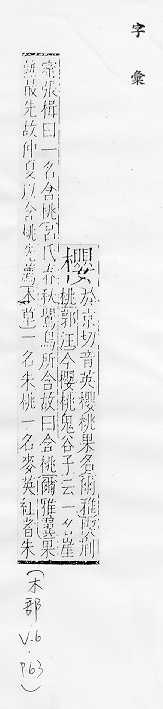 字彙
櫻
於京切音英櫻桃果名爾雅楔荆
桃郭注今櫻桃鬼谷子云一名崖
蜜張楫曰一名含桃呂氏春秋鸎鳥所含故曰含桃爾雅羣果
最先故仲夏以含桃先薦本草一名朱桃一名麥英紅者朱
(木部
V.6
.
P63)